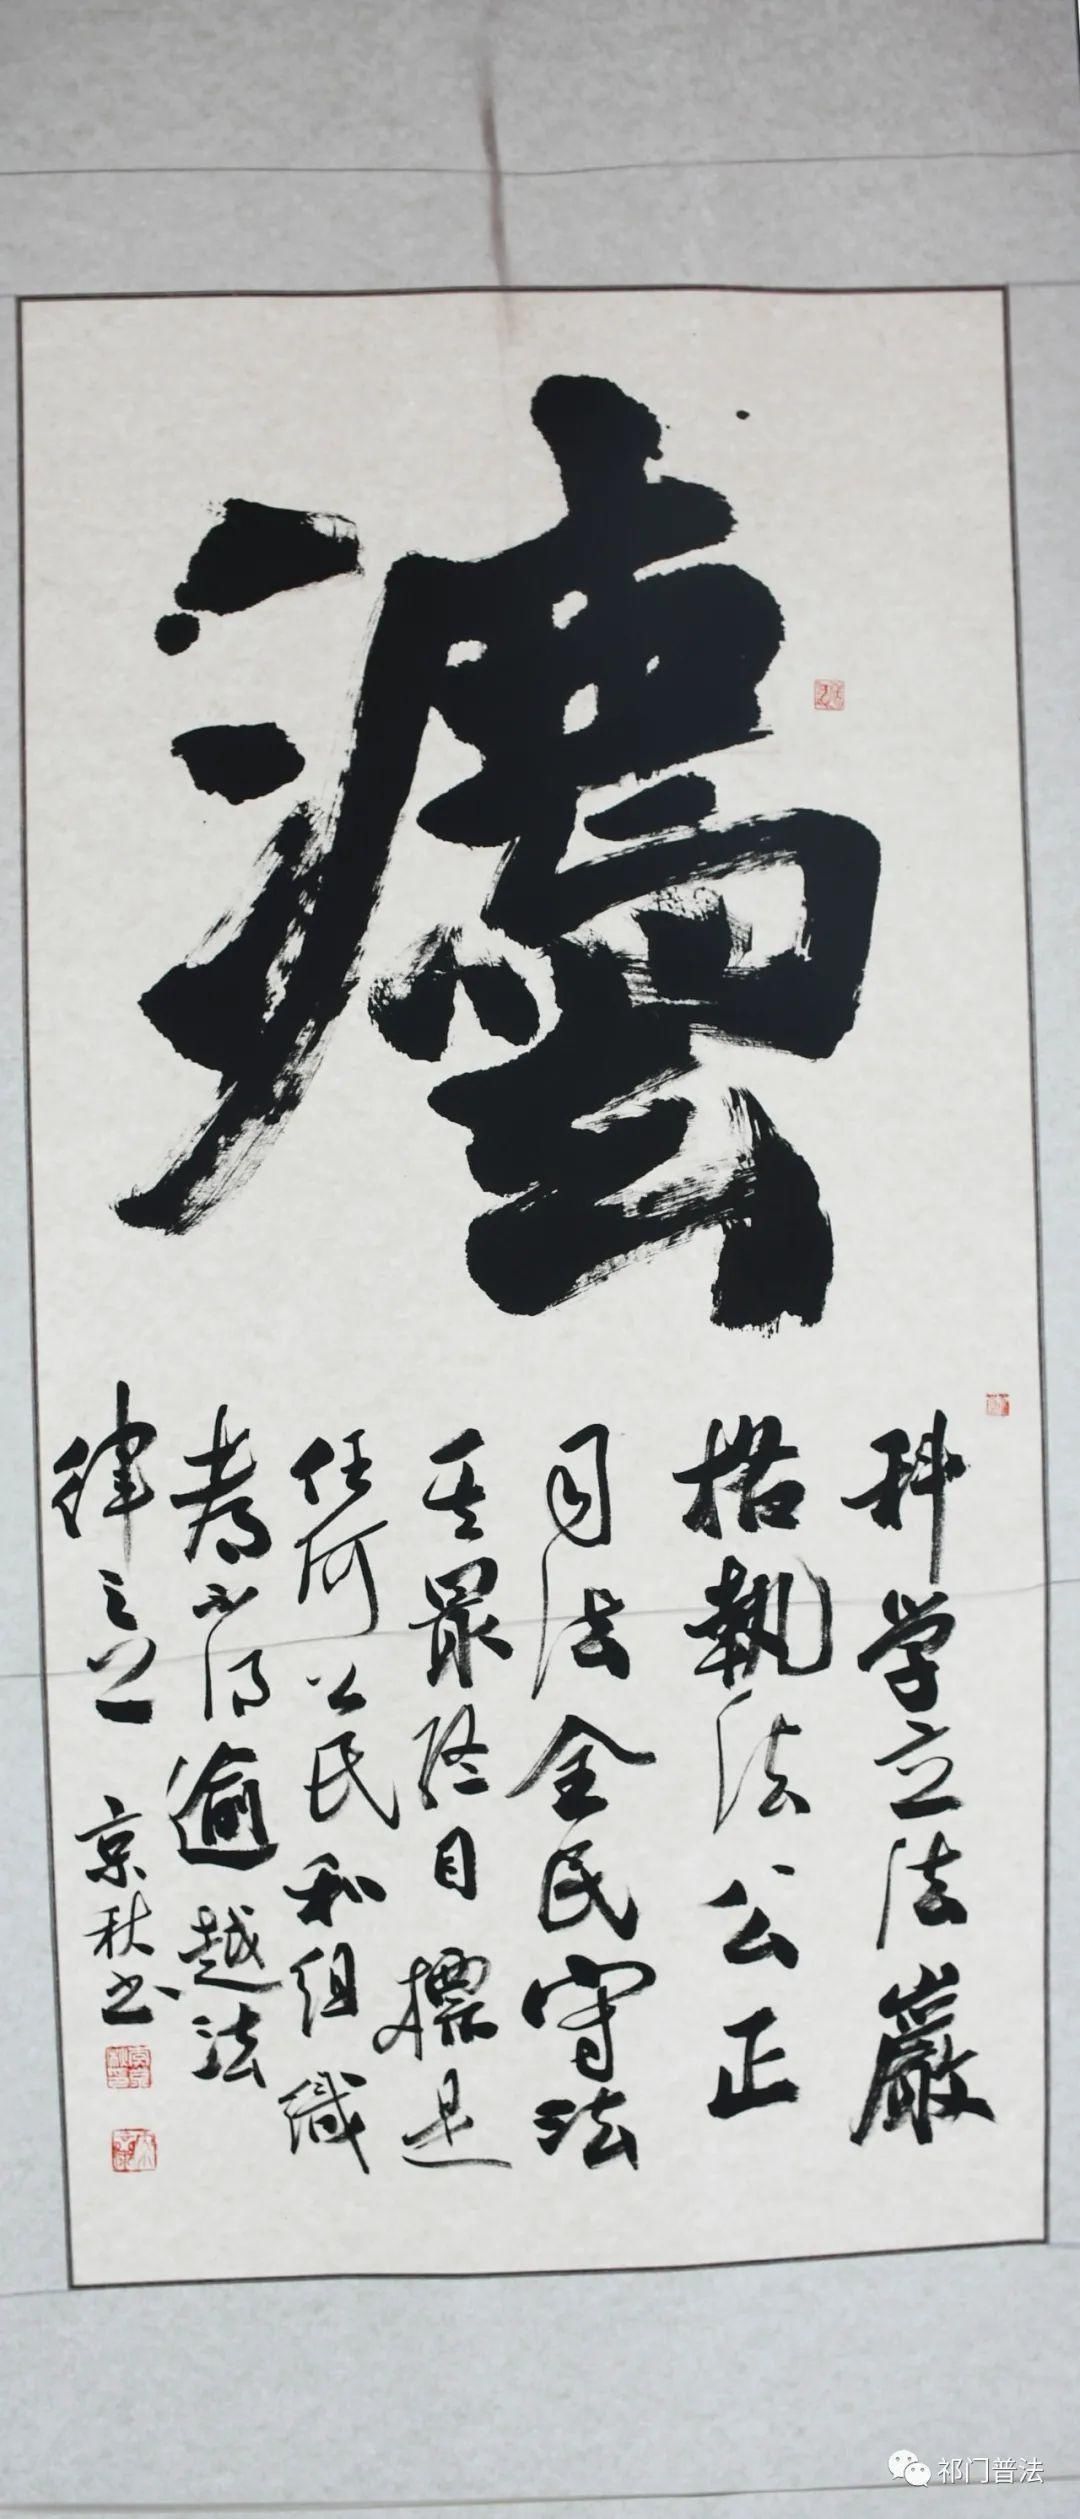 灋
科学立法嚴
格執法公正
司法全民守法
其最终目標是
任何公民和组織
都不得逾越法
律之上 京秋书
祁门普法